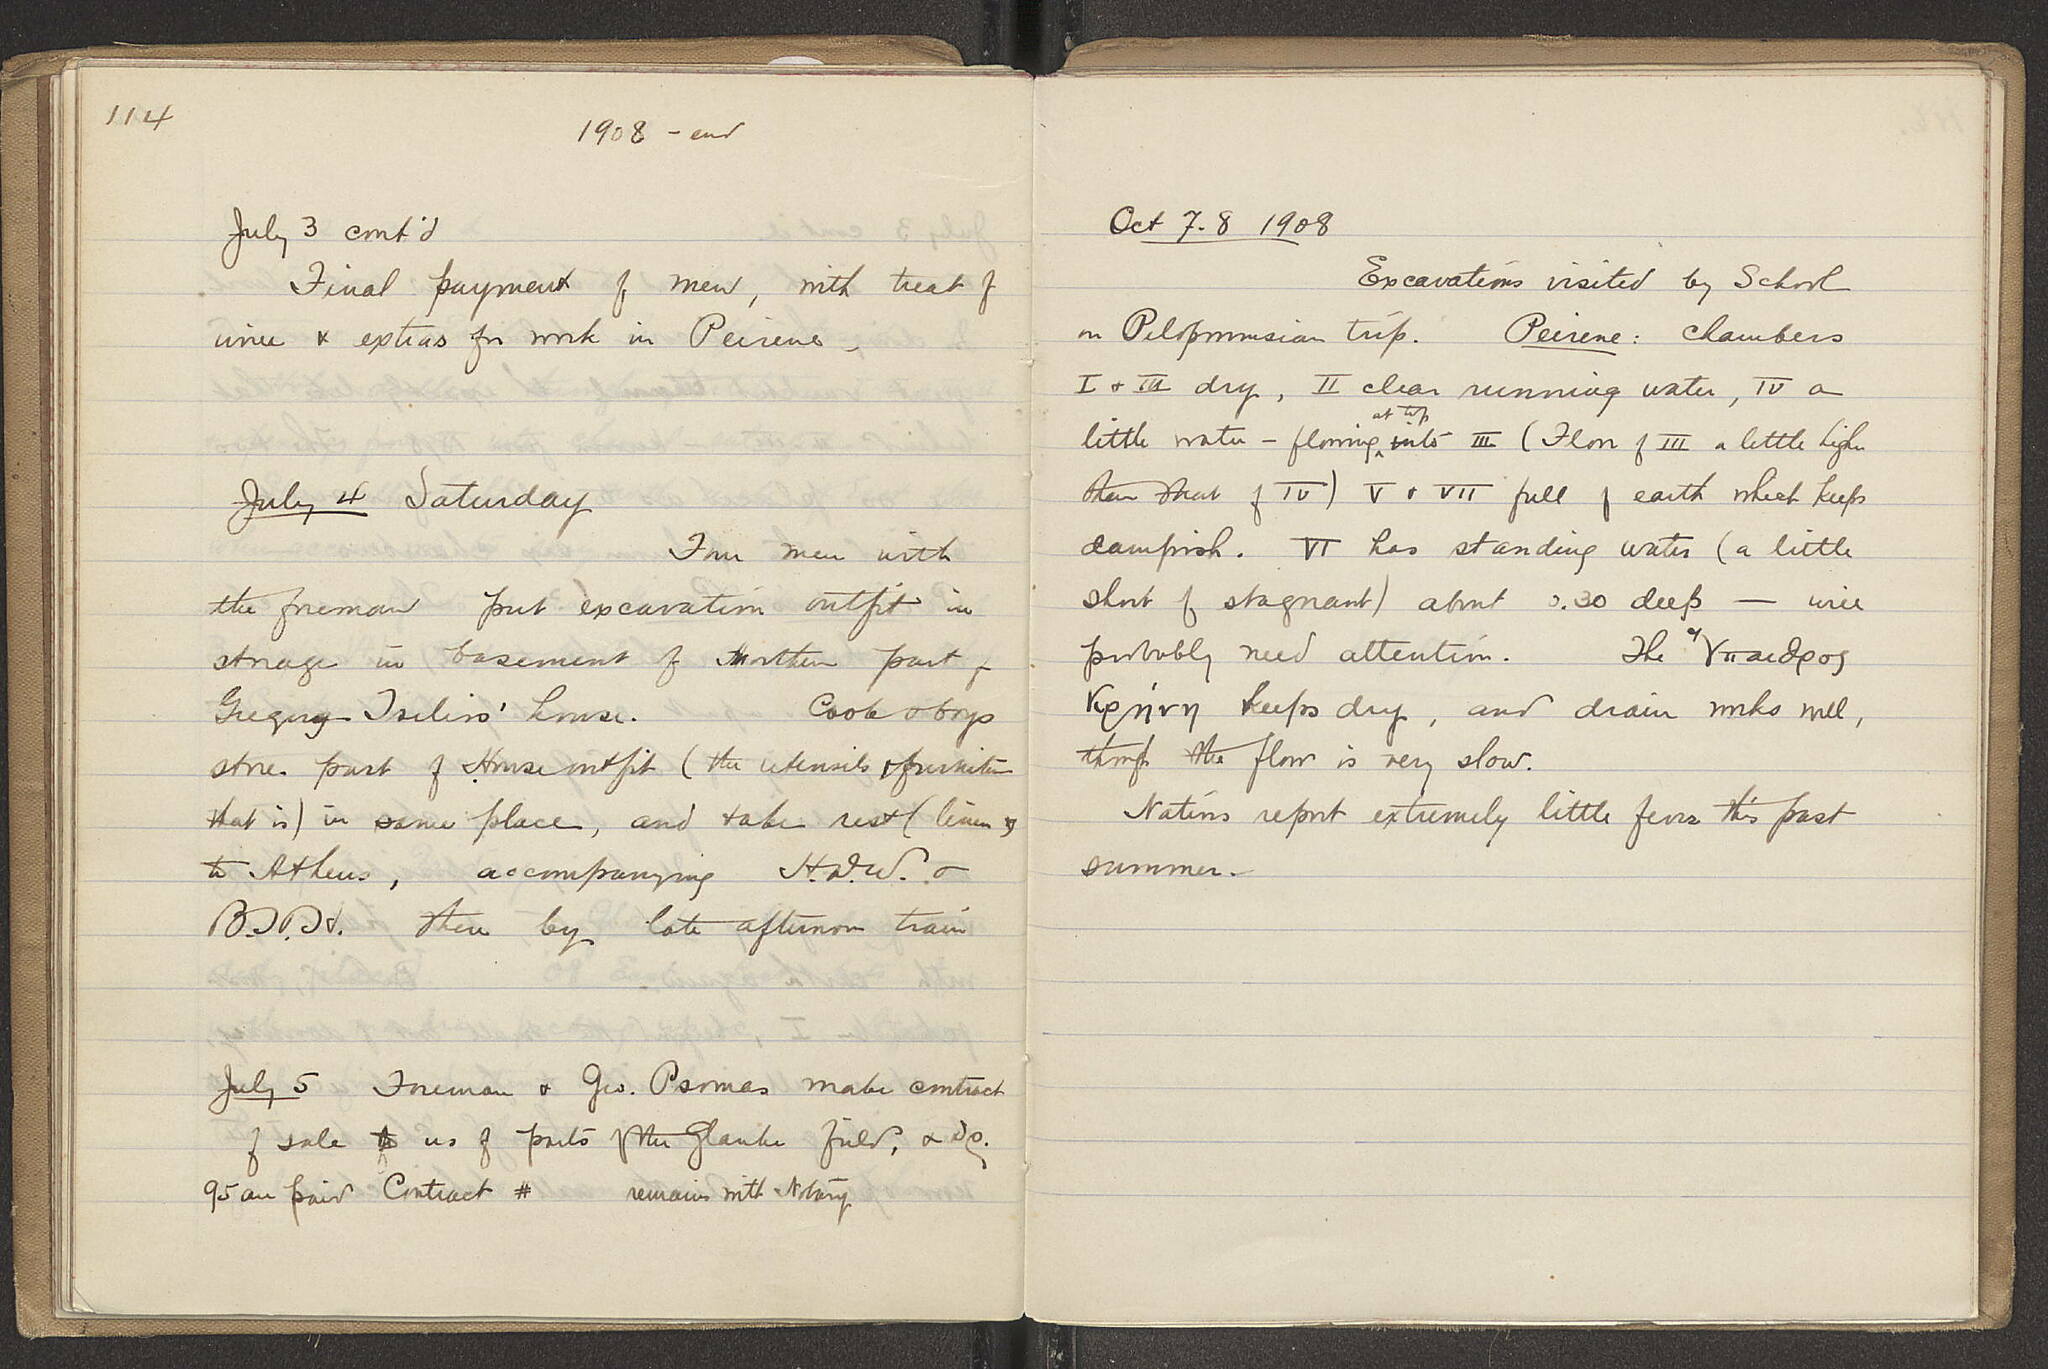 114
1908 - end
July 3 cont'd
Final payment of men, with treat of
wine & extras for work in Peirene.
July 4 Saturday
Four men with
the foreman put excavation outfit in
storage in basement of Northern part of
Gregory Tselios' house. Cook & boys
store part of House outfit (the utensils & furniture
that is) in same place, and take rest (linen &)
to Athens, accompanying H.D.W. &
B.H.H. there by late afternoon train
July 5 Foreman & Geo. Psomas make contract
of sale to us of parts of the Glauke field, & δρ.
95 are paid Contract # remains with Notary
Oct 7-8 1908
Excavations visited by School
on Peloponnesian trip. Peirene: Chambers
I & III dry, II clear running water, IV a
little water - flowing at top into III (Floor of III a little higher
than that of IV) V & VII full of earth which keeps
dampish. VI has standing water (a little
short of stagnant) about 0.30 deep — will
probably need attention. The Ὕπαιθρος
Κρήνη keeps dry, and drain works well,
though the flow is very slow.
Natives report extremely little fever this past
summer.